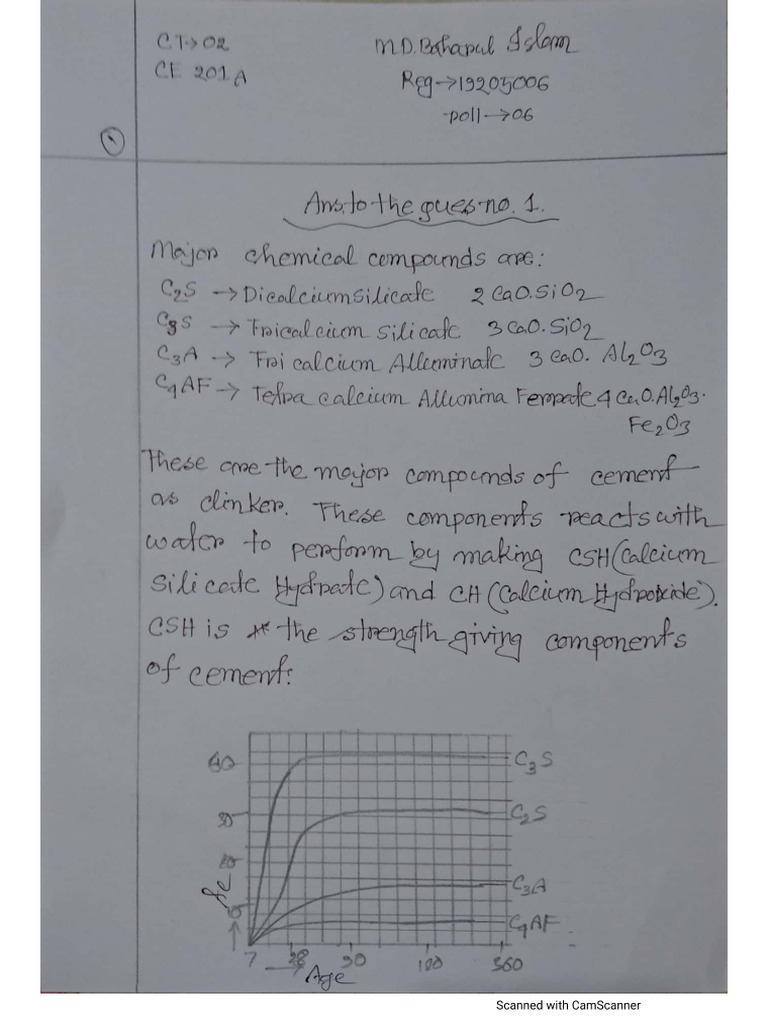 CT→02
CE 201A
M.D. Baharul Islam
Reg→19205006
Roll→06
Ans. to the ques no. 1.
Major chemical compounds are:
C2S → Dicalcium silicate 2CaO.SiO2
C3S → Tricalcium silicate 3CaO.SiO2
C3A → Tri calcium Alluminate 3CaO. Al2O3
C4AF → Tetra calcium Allumina Ferrate 4CaO.Al2O3.
Fe2O3
These are the major compounds of cement
as clinker. These components reacts with
water to perform by making CSH (Calcium
Silicate Hydrate) and CH (Calcium Hydroxide).
CSH is the strength giving components
of cement:
C3S
C2S
C3A
C4AF
fc
7 28 90 180 360
→ Age
Scanned with CamScanner